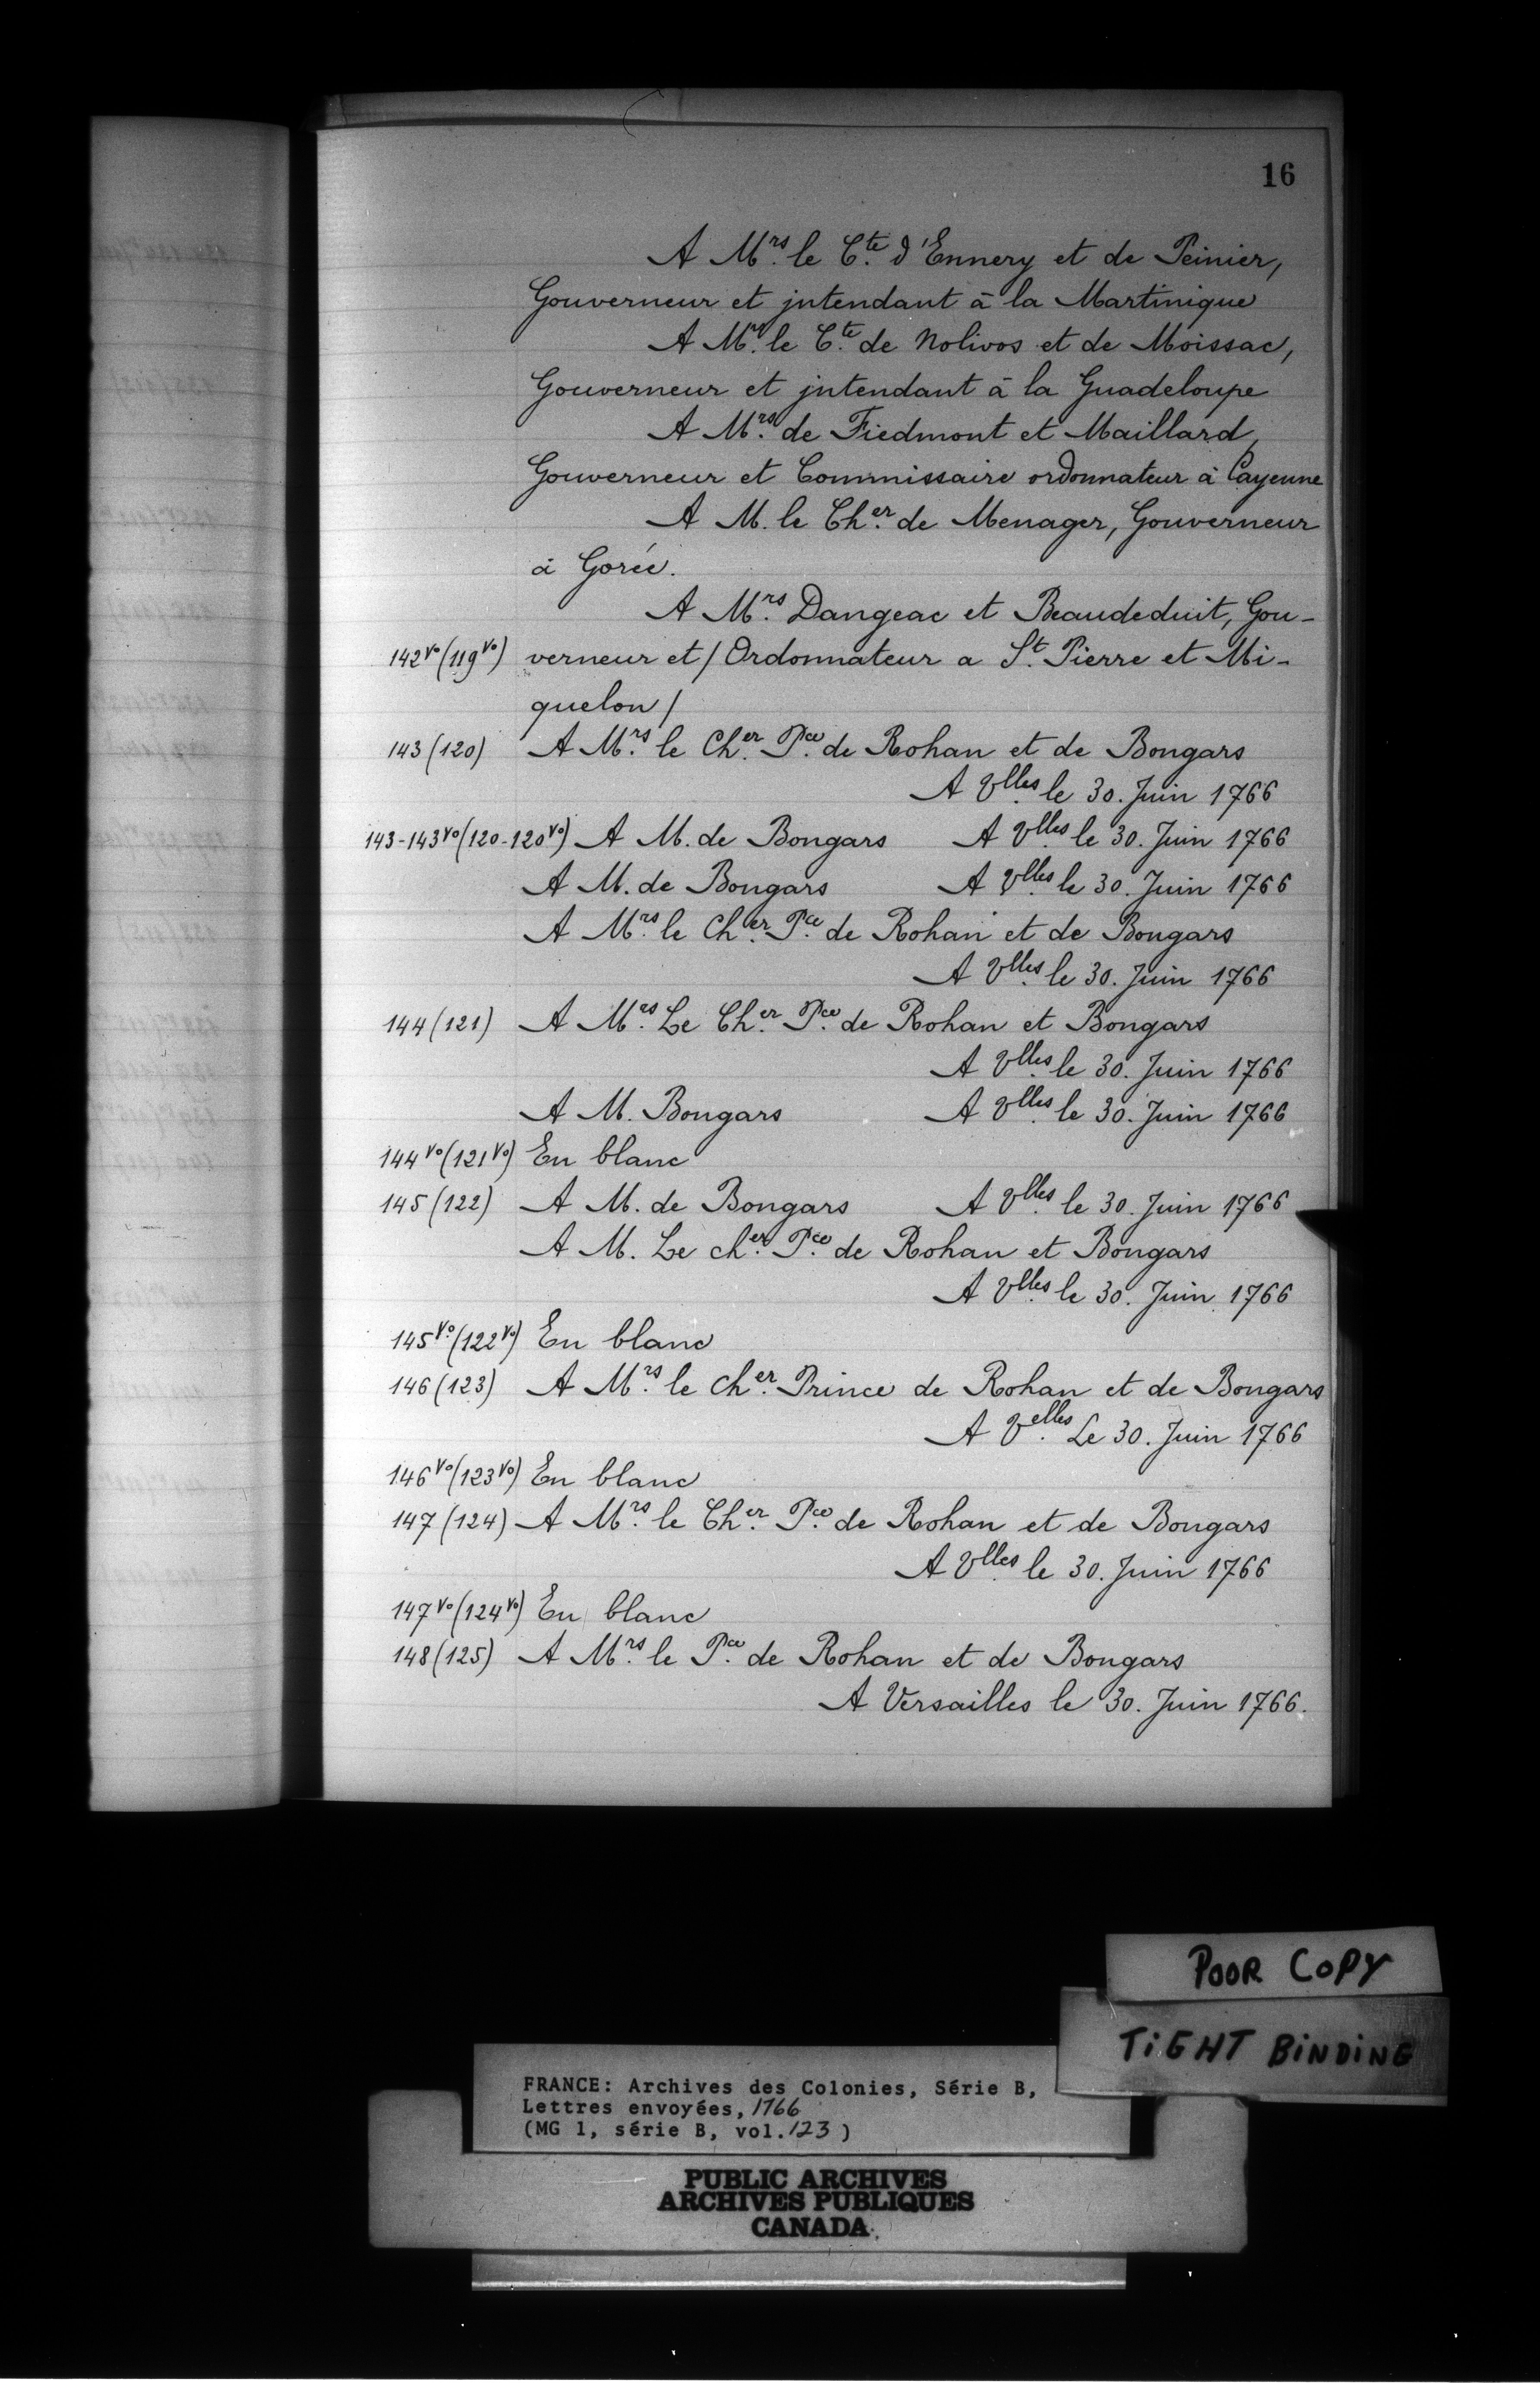 16
A Mrs. le Cte. d'Ennery et de Peinier,
Gouverneur et jntendant à la Martinique
A Mrs. le Cte. de Nolivos et de Moissac,
Gouverneur et jntendant à la Guadeloupe
A Mrs. de Fiedmont et Maillard,
Gouverneur et Commissaire ordonnateur à Cayenne
A M. le Cher. de Menager, Gouverneur
à Gorée.
A Mrs. Dangeac et Beaudeduit, Gou-
142vo (119vo) verneur et / Ordonnateur a St. Pierre et Mi-
quelon /
143 (120) A Mrs. le Cher. Pce. de Rohan et de Bongars
A Vlles. le 30. Juin 1766
143-143vo (120-120vo) A M. de Bongars A Vlles. le 30. Juin 1766
A M. de Bongars A Vlles. le 30. Juin 1766
A Mrs. le Cher. Pce. de Rohan et de Bongars
A Vlles. le 30. Juin 1766
144 (121) A Mrs. Le Cher. Pce. de Rohan et Bongars
A Vlles. le 30. Juin 1766
A M. Bongars A Vlles. le 30. Juin 1766
144vo (121vo) En blanc
145 (122) A M. de Bongars A Vlles. le 30. Juin 1766
A M. Le cher. Pce. de Rohan et Bongars
A Vlles. le 30. Juin 1766
145vo (122vo) En blanc
146 (123) A Mrs. le cher. Prince de Rohan et de Bongars
A Velles. Le 30. Juin 1766
146vo (123vo) En blanc
147 (124) A Mrs. le Cher. Pce. de Rohan et de Bongars
A Vlles. le 30. Juin 1766
147vo (124vo) En blanc
148 (125) A Mrs. le Pce. de Rohan et de Bongars
A Versailles le 30. Juin 1766.
POOR COPY
TIGHT BINDING
FRANCE: Archives des Colonies, Série B,
Lettres envoyées, 1766
(MG 1, série B, vol. 123)
PUBLIC ARCHIVES
ARCHIVES PUBLIQUES
CANADA